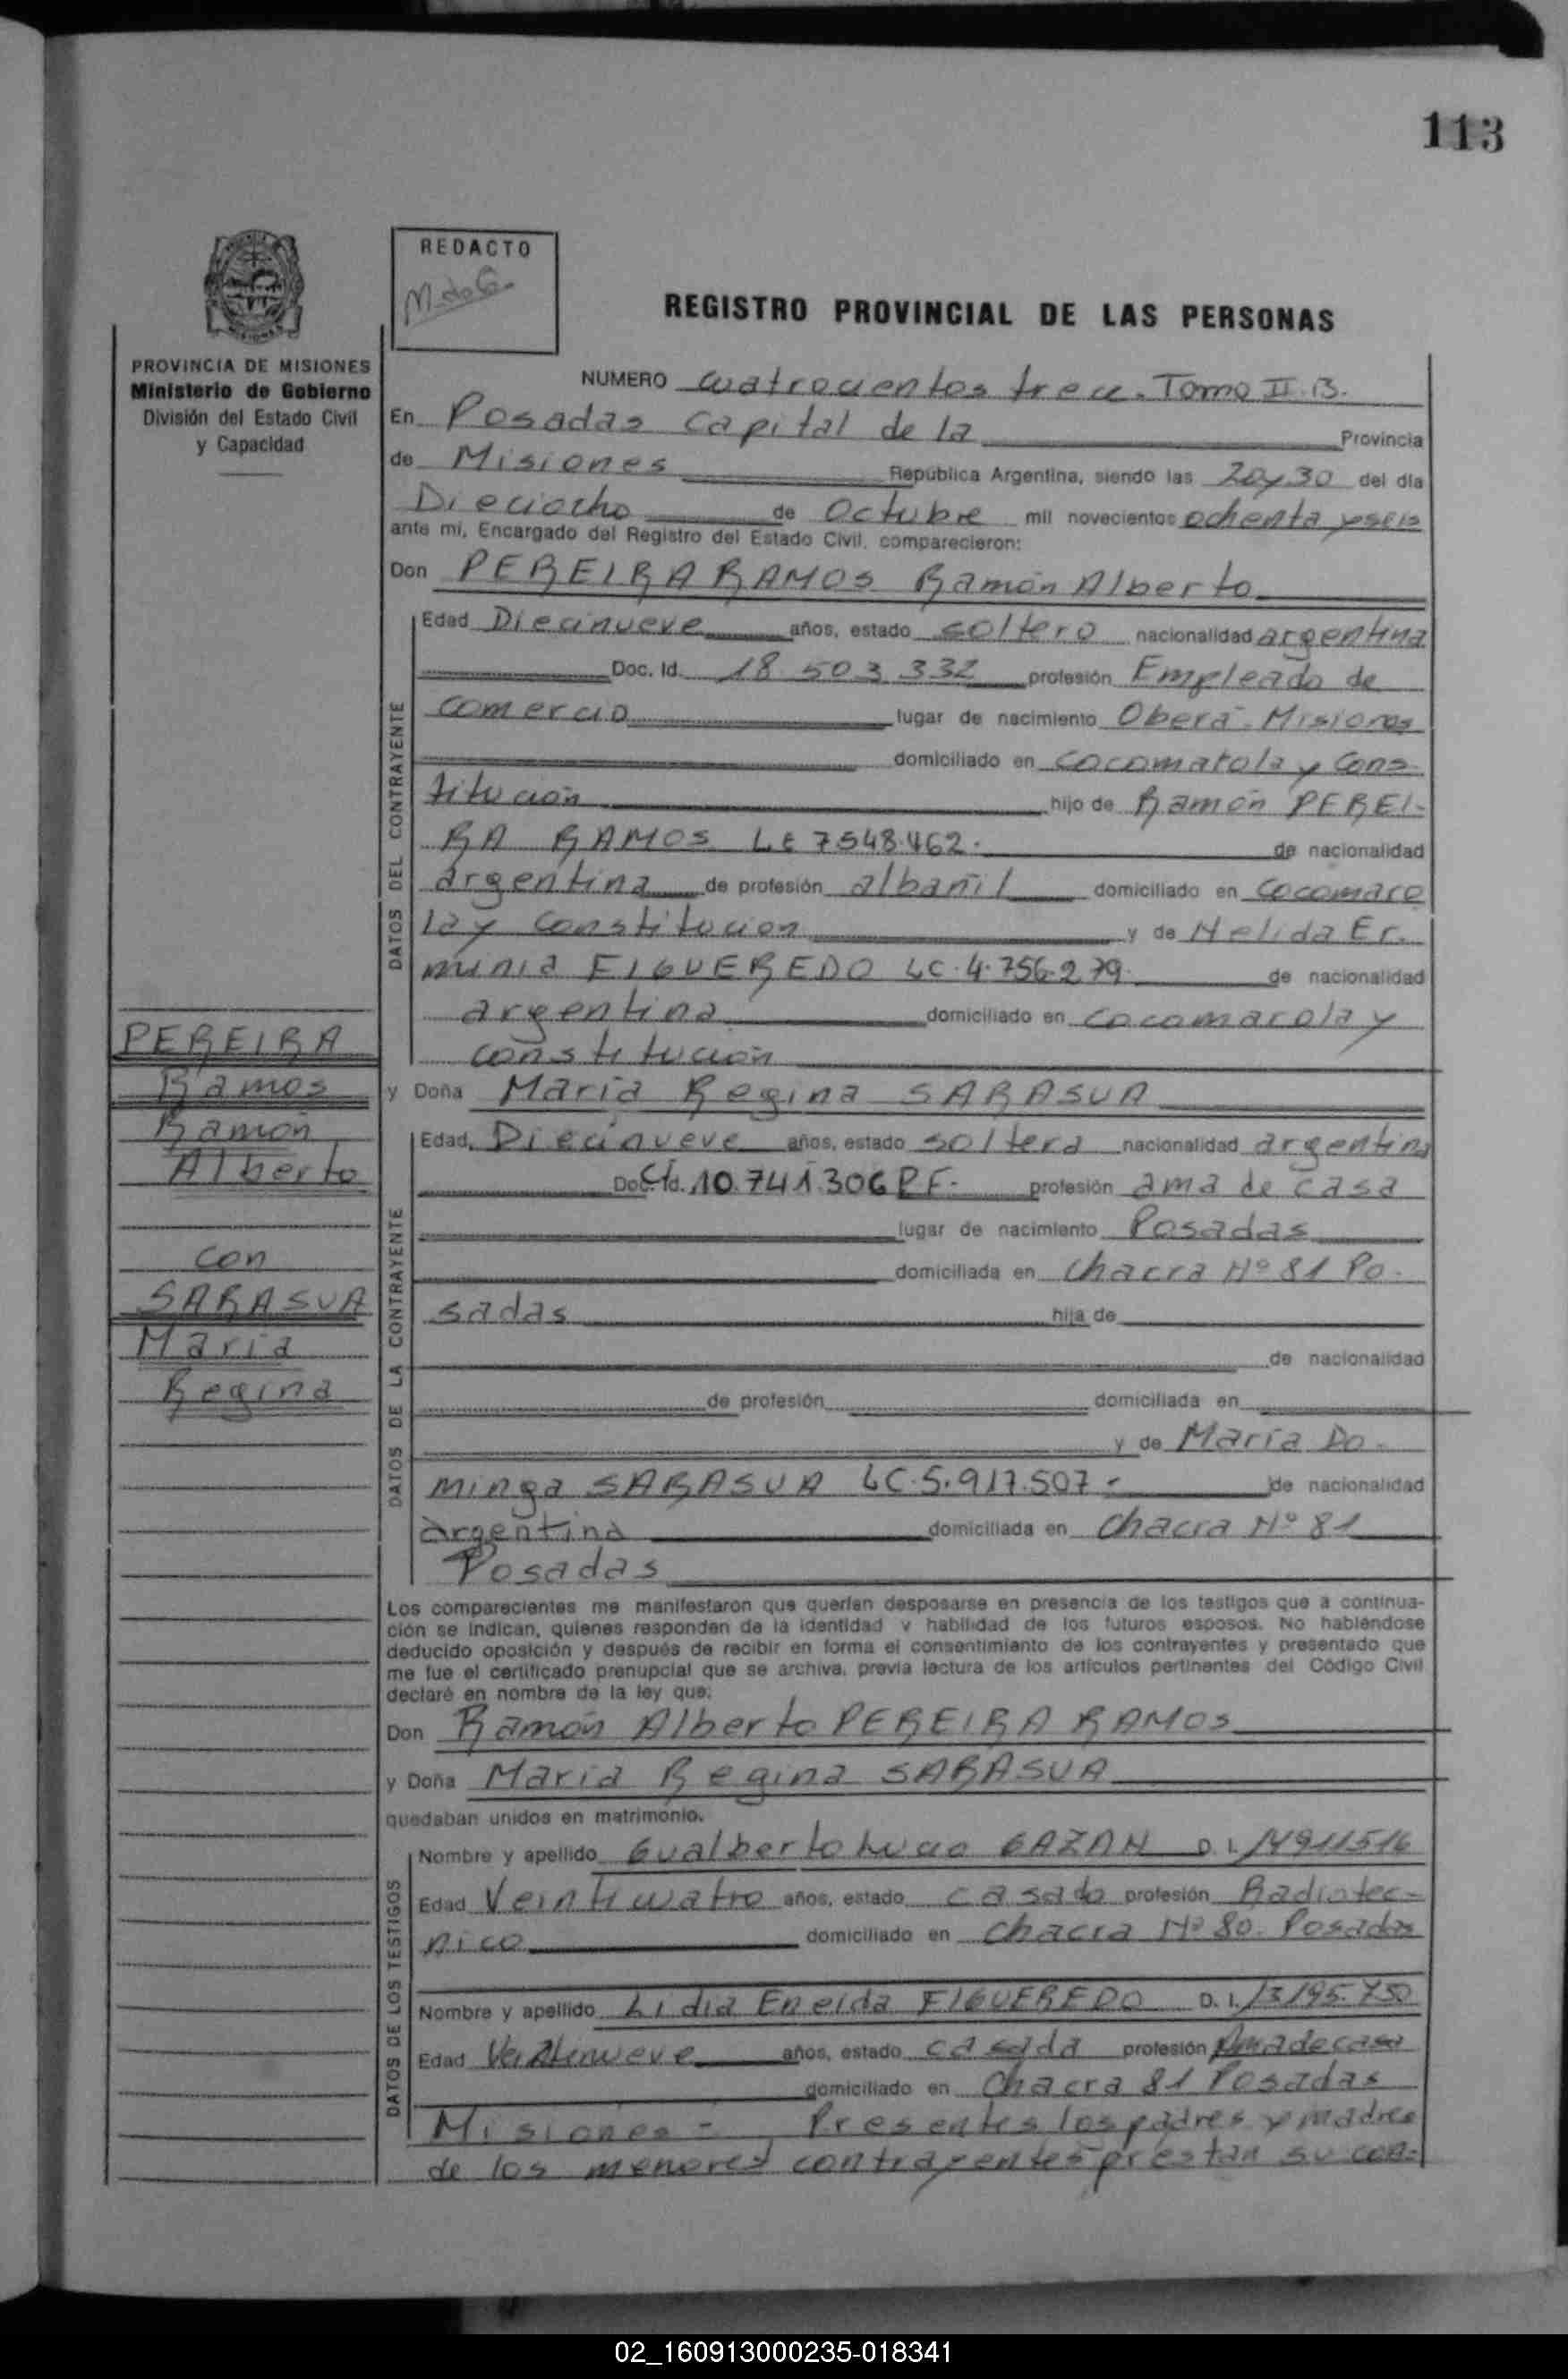 113
REDACTO
REGISTRO PROVINCIAL DE LAS PERSONAS
PROVINCIA DE MISIONES
Ministerio de Gobierno
División del Estado Civil
y Capacidad
NUMERO cuatrocientos trece. Tomo II.B.
En Posadas Capital de la Provincia
de Misiones República Argentina, siendo las 20y30 del día
Dieciocho de Octubre mil novecientos ochenta y seis
ante mí, Encargado del Registro del Estado Civil, comparecieron:
Don PEREIRA RAMOS Ramón Alberto
DATOS DEL CONTRAYENTE
Edad Diecinueve años, estado soltero nacionalidad argentina
Doc. Id. 18.503.332 profesión Empleado de
comercio lugar de nacimiento Oberá-Misiones
domiciliado en Cocomarola y Cons-
titución hijo de Ramón PEREI-
RA RAMOS LE 7548.462. de nacionalidad
argentina de profesión albañil domiciliado en Cocomaro
la y constitucion y de Nelida Er-
minia FIGUEREDO LC.4.756.279. de nacionalidad
argentina domiciliado en cocomarola y
constitución
PEREIRA
Ramos
Ramón
Alberto
con
SARASUA
María
Regina
y Doña María Regina SARASUA
DATOS DE LA CONTRAYENTE
Edad, Diecinueve años, estado soltera nacionalidad argentina
Doc. Id. 10.741.306 P.F. profesión ama de casa
lugar de nacimiento Posadas
domiciliada en chacra Nº 81 Po-
sadas hija de
de nacionalidad
de profesión domiciliada en
y de María Do-
minga SARASUA LC.5.917.507.- de nacionalidad
argentina domiciliada en Chacra Nº 81
Posadas
Los comparecientes me manifestaron que querían desposarse en presencia de los testigos que a continua-
ción se indican, quienes responden de la identidad y habilidad de los futuros esposos. No habiéndose
deducido oposición y después de recibir en forma el consentimiento de los contrayentes y presentado que
me fue el certificado prenupcial que se archiva, previa lectura de los artículos pertinentes del Código Civil
declaré en nombre de la ley que:
Don Ramón Alberto PEREIRA RAMOS
y Doña María Regina SARASUA
quedaban unidos en matrimonio.
DATOS DE LOS TESTIGOS
Nombre y apellido Gualberto Lucio GAZAN D. I. 14911516
Edad Veinticuatro años, estado casado profesión Radiotec-
nico domiciliado en chacra Nº 80. Posadas
Nombre y apellido Lidia Eneida FIGUEREDO D. I. 13195.750
Edad Veintinueve años, estado casada profesión Ama de casa
domiciliado en Chacra 81 Posadas
Misiones - Presentes los padres y madres
de los menores contrayentes prestan su con-
02_160913000235-018341